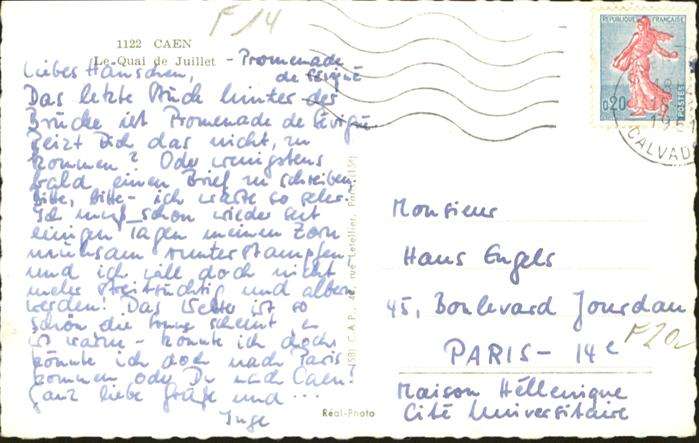 F14
1122 CAEN
Le Quai de Juillet - Promenade
de Sévigné
Liebes Hänschen,
Das letzte Stück hinter der
Brücke ist Promenade de Sévigné
Reizt Dich das nicht, zu
kommen? Oder wenigstens
bald einen Brief zu schreiben.
Bitte, bitte - ich warte so sehr.
Ich muß schon wieder seit
einigen Tagen meinen Zorn
mühsam runterstampfen
und ich will doch nicht
mehr streitsüchtig und albern
werden! Das Wetter ist so
schön die Sonne scheint es
ist warm - könnte ich doch
könnte ich doch nach Paris
kommen oder Du nach Caen!
Ganz liebe Grüße und ...
Inge
C.A.P., rue Letellier,
Réal-Photo
REPUBLIQUE FRANÇAISE
0,20
POSTES
18
CALVADOS
Monsieur
Hans Engels
45, Boulevard Jourdan
PARIS - 14e
F20
Maison Héllenique
Cité Universitaire